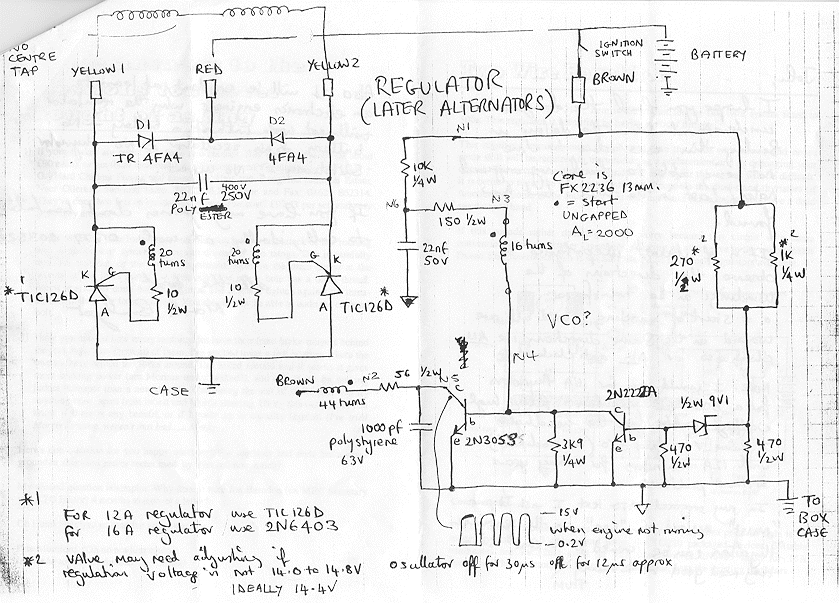 NO
CENTRE
TAP
YELLOW 1
RED
YELLOW 2
REGULATOR
(LATER ALTERNATORS)
IGNITION
SWITCH
BATTERY
BROWN
D1
IR 4FA4
D2
4FA4
22nf 400V
250V
POLYESTER
N1
10K
1/4W
N6
150 1/2W
N3
22nf
50V
16 turns
Core is
FX2236 13mm.
• = start
UNGAPPED
AL = 2000
270 *2
1/2W
*2
1K
1/4W
20
turns
20
turns
K
G
A
10
1/2W
10
1/2W
G
K
A
*1
TIC126D
* TIC126D
CASE
VCO?
N4
BROWN
44 turns
N2
56 1/2W
N5
1000pf
polystyrene
63V
c
b
e
2N3053
3K9
1/4W
2N2222A
c
b
e
1/2W 9V1
470
1/2W
470
1/2W
TO
BOX
CASE
15V
when engine not running
0.2V
*1
FOR 12A regulator use TIC126D
for 16A regulator use 2N6403
*2 VALUE may need adjusting if
regulation voltage is not 14.0 to 14.8V
IDEALLY 14.4V
oscillator off for 30µs off for 12µs approx